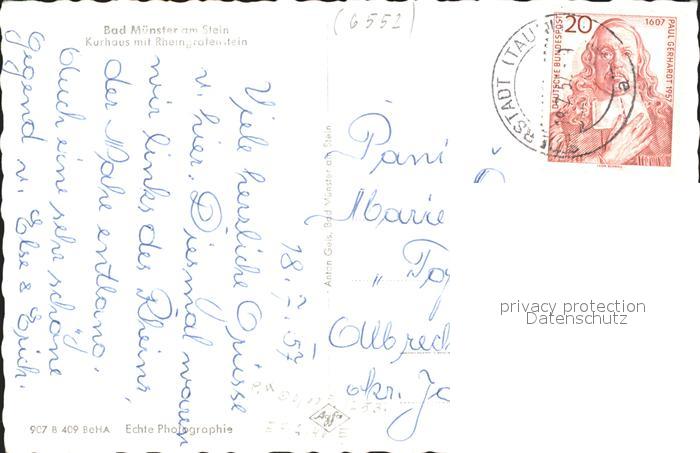 (6552)
Bad Münster am Stein
Kurhaus mit Rheingrafenstein
18.7.57
Viele herzliche Grüsse
v. hier. Diesmal waren
wir links des Rheins,
der Nahe entlang.
Auch eine sehr schöne
Gegend v. Else & Erich.
Anton Geis, Bad Münster am Stein
Paní
Marie
Olbrec
okr. Ja
20
1607
DEUTSCHE BUNDESPOST
PAUL GERHARDT 1957
RSTADT (TAU
privacy protection
Datenschutz
Agfa
907 B 409 BeHA Echte Photographie